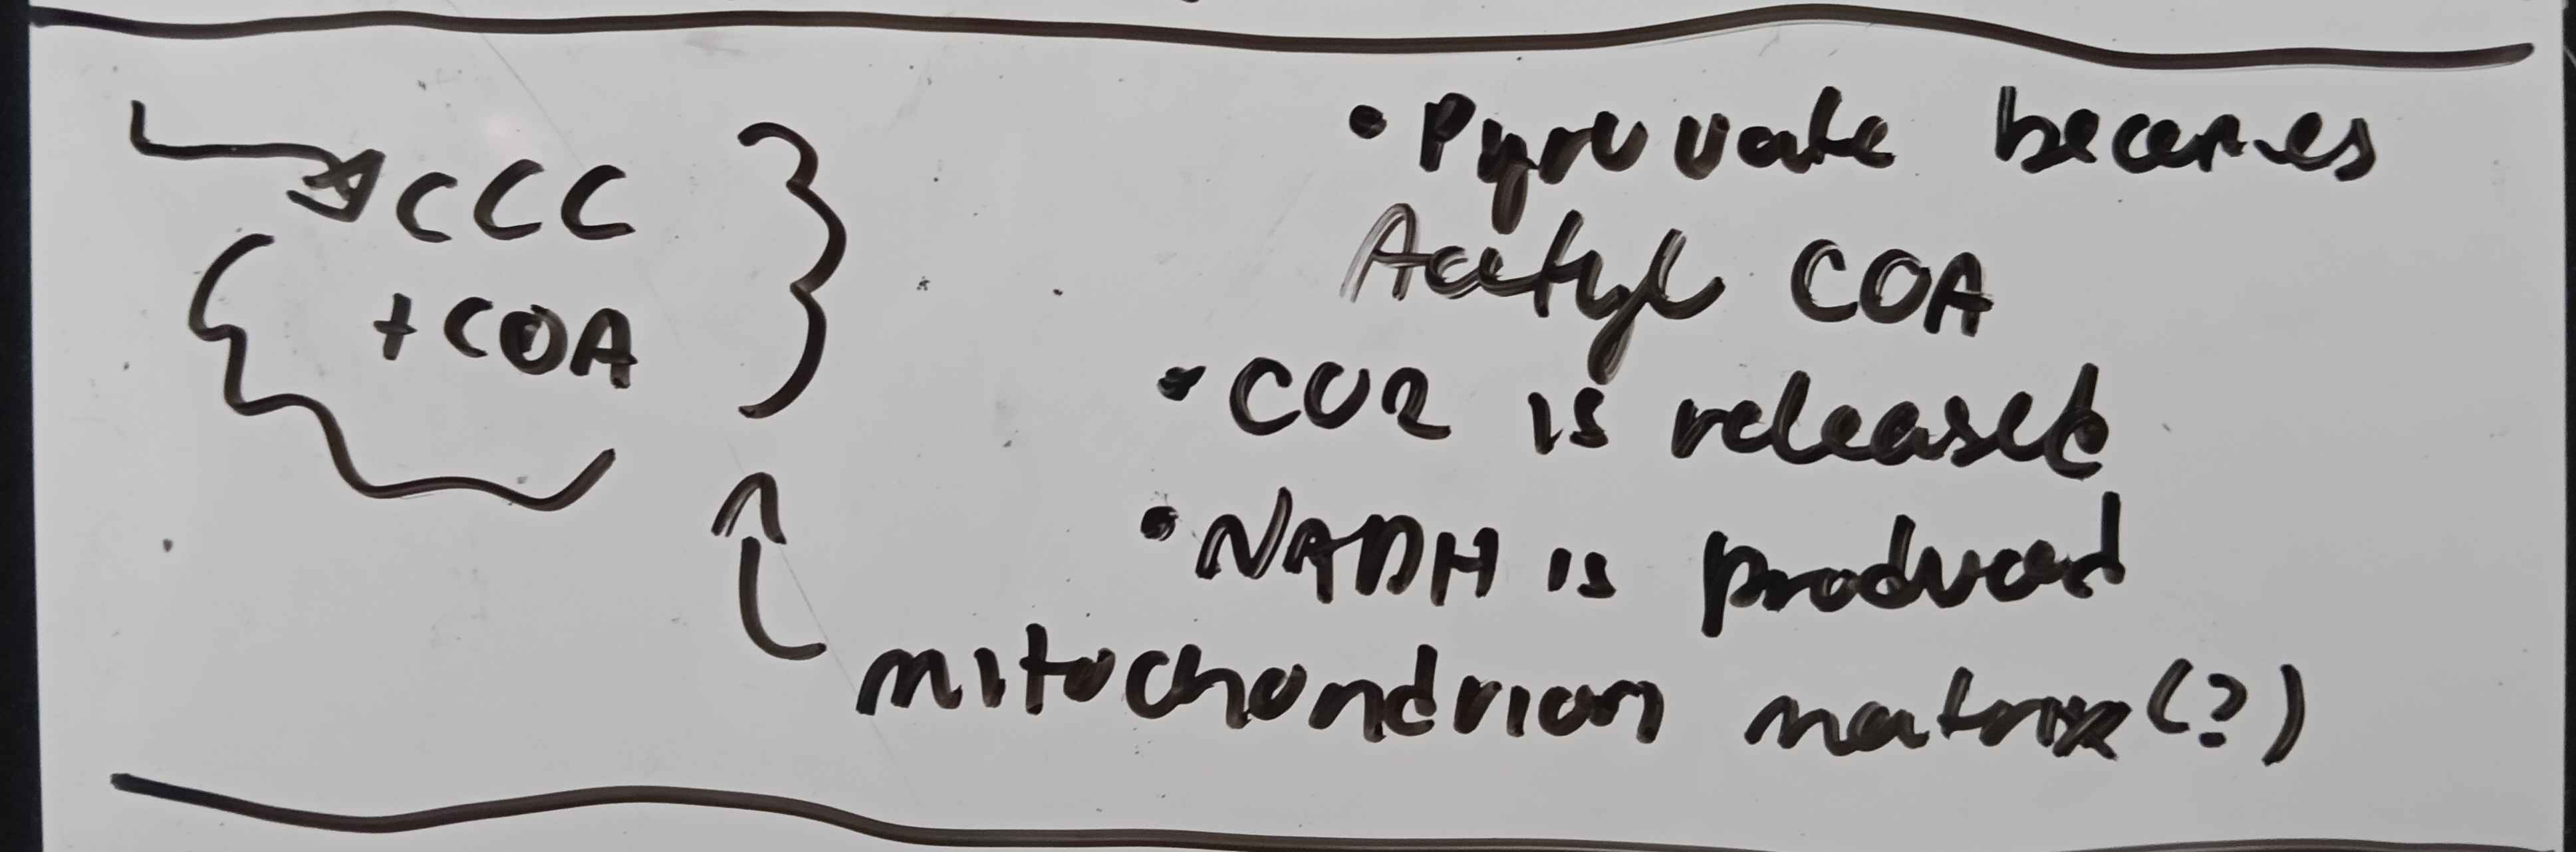 CCC
+COA
• Pyruvate becomes
Acetyl COA
• CO2 is released
• NADH is produced
mitochondrion matrix (?)